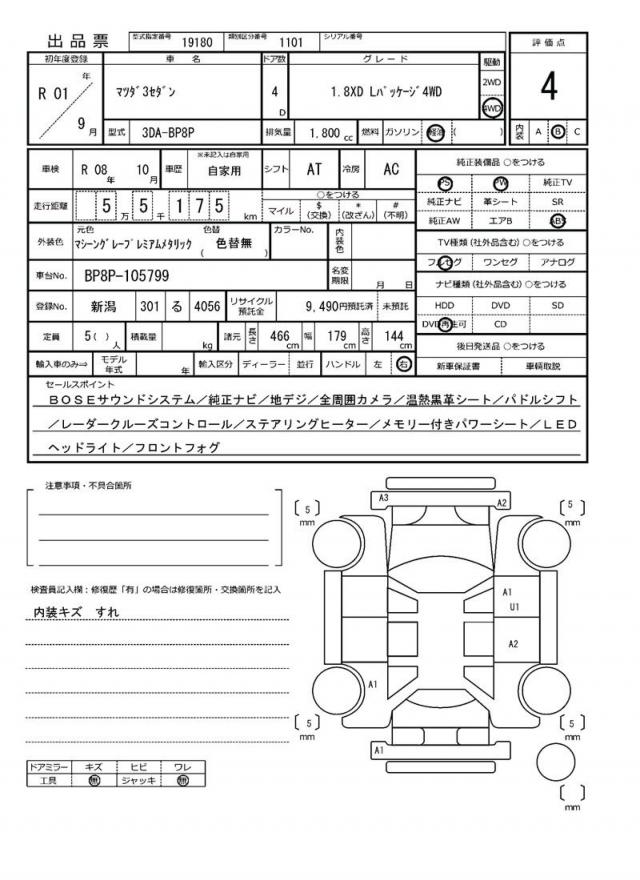 出品票 型式指定番号 19180 類別区分番号 1101 シリアル番号
評価点
4
初年度登録 車名 ドア数 グレード 駆動
R 01 年 9 月
マツダ3セダン 4 D 1.8XD Lパッケージ4WD 2WD 4WD
型式 3DA-BP8P 排気量 1.800 cc 燃料 ガソリン 軽油 ( )
内装 A B C
車検 R 08 年 10 月 車歴 ※未記入は自家用 自家用 シフト AT 冷房 AC
走行距離 5 万 5 千 1 7 5 km
○をつける
マイル $ (交換) * (改ざん) # (不明)
外装色 元色 マシーングレープレミアムメタリック 色替 ( 色替無 ) カラーNo. 内装色
車台No. BP8P-105799 名変期限 月 日
登録No. 新潟 301 る 4056 リサイクル預託金 9,490円預託済 未預託
定員 5( ) 人 積載量 kg 諸元 長さ 466 cm 幅 179 cm 高さ 144 cm
輸入車のみ⇒ モデル年式 年 輸入区分 ディーラー 並行 ハンドル 左 右
純正装備品 ○をつける
PS PW 純正TV
純正ナビ 革シート SR
純正AW エアB ABS
TV種類(社外品含む) ○をつける
フルセグ ワンセグ アナログ
ナビ種類(社外品含む) ○をつける
HDD DVD SD
DVD再生可 CD
後日発送品 ○をつける
新車保証書 車輌取説
セールスポイント
BOSEサウンドシステム/純正ナビ/地デジ/全周囲カメラ/温熱黒革シート/パドルシフト
/レーダークルーズコントロール/ステアリングヒーター/メモリー付きパワーシート/LED
ヘッドライト/フロントフォグ
注意事項・不具合箇所
検査員記入欄:修復歴「有」の場合は修復箇所・交換箇所を記入
内装キズ すれ
ドアミラー キズ ヒビ ワレ
工具 無 ジャッキ 無
A3 A2
5 mm
5 mm
A1
U1
A2
A1
5 mm
5 mm
A1
mm